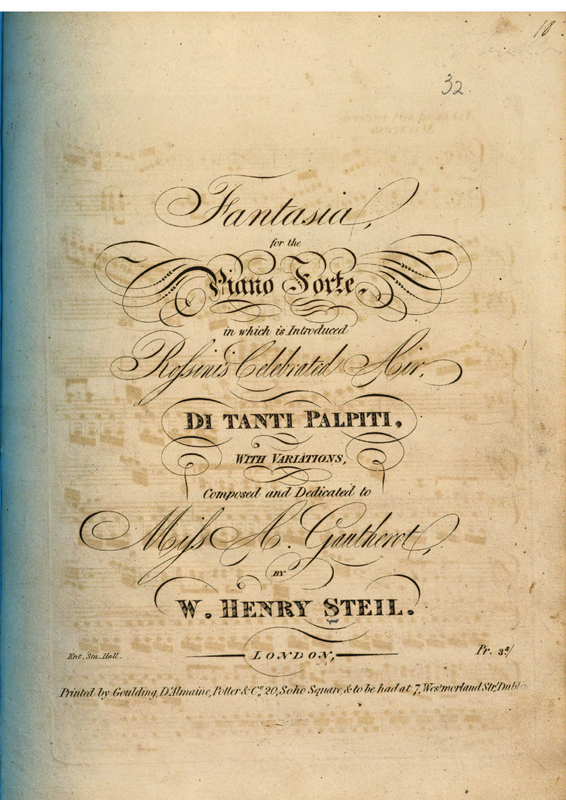 18
32
Fantasia,
for the
Piano Forte,
in which is Introduced
Rossini's Celebrated Air,
DI TANTI PALPITI,
WITH VARIATIONS,
Composed and Dedicated to
Miss A. Gautherot,
BY
W. HENRY STEIL.
LONDON,
Ent. Sta. Hall. Pr. 3s/
Printed by Goulding, D'Almaine, Potter & Co. 20, Soho Square, & to be had at 7, Westmorland Str. Dublin